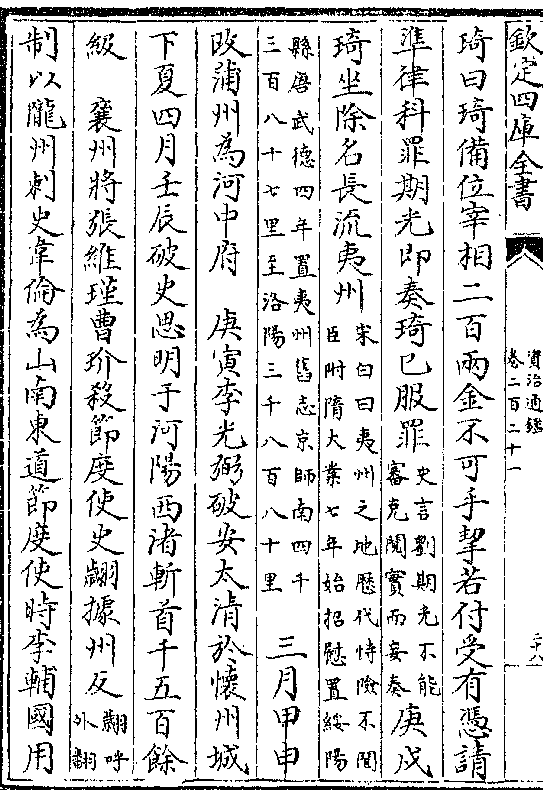 欽定四庫全書
資治通鑑
卷二百二十一
二十八
琦曰琦備位宰相二百兩金不可手挈若付受有憑請
準律科罪期光即奏琦已服罪史言劉期光不能審克閱實而妄奏庚戌
琦坐除名長流夷州宋白曰夷州之地歷代恃險不閒臣附隋大業七年始招慰置綏陽
縣唐武德四年置夷州舊志京師南四千三百八十七里至洛陽三千八百八十里三月甲申
改蒲州為河中府 庚寅李光弼破安太清於懷州城
下夏四月壬辰破史思明于河陽西渚斬首千五百餘
級 襄州將張維瑾曹玠殺節度使史翽據州反翽呼外翻
制以隴州刺史韋倫為山南東道節度使時李輔國用